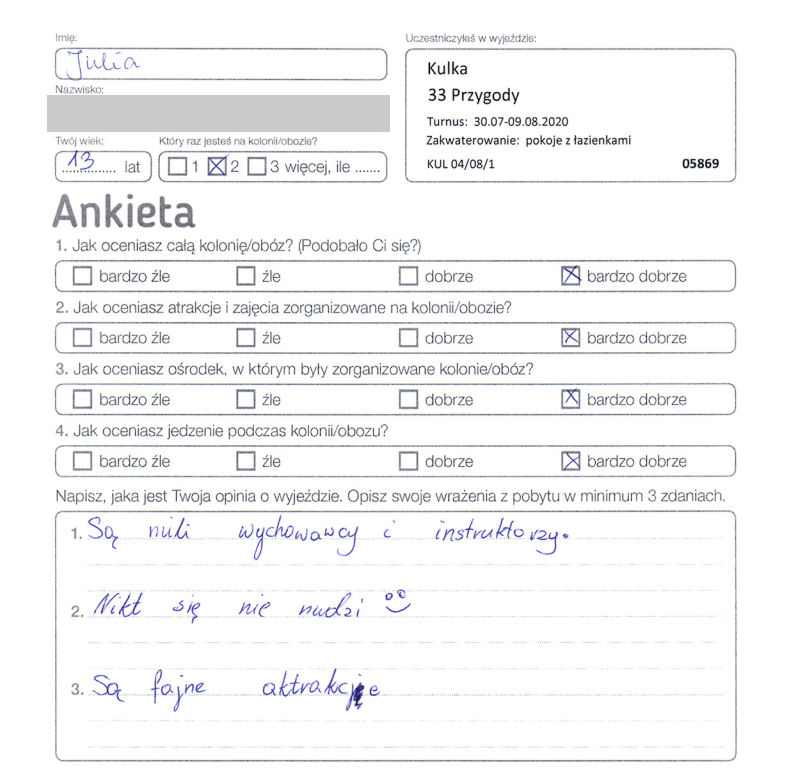 Imię:
Julia
Nazwisko:
Twój wiek:
13 lat
Który raz jesteś na kolonii/obozie?
1 2 3 więcej, ile .......
Uczestniczyłeś w wyjeździe:
Kulka
33 Przygody
Turnus: 30.07-09.08.2020
Zakwaterowanie: pokoje z łazienkami
KUL 04/08/1 05869
Ankieta
1. Jak oceniasz całą kolonię/obóz? (Podobało Ci się?)
bardzo źle źle dobrze bardzo dobrze
2. Jak oceniasz atrakcje i zajęcia zorganizowane na kolonii/obozie?
bardzo źle źle dobrze bardzo dobrze
3. Jak oceniasz ośrodek, w którym były zorganizowane kolonie/obóz?
bardzo źle źle dobrze bardzo dobrze
4. Jak oceniasz jedzenie podczas kolonii/obozu?
bardzo źle źle dobrze bardzo dobrze
Napisz, jaka jest Twoja opinia o wyjeździe. Opisz swoje wrażenia z pobytu w minimum 3 zdaniach.
1. Są mili wychowawcy i instruktorzy.
2. Nikt się nie nudzi
3. Są fajne aktrakcje